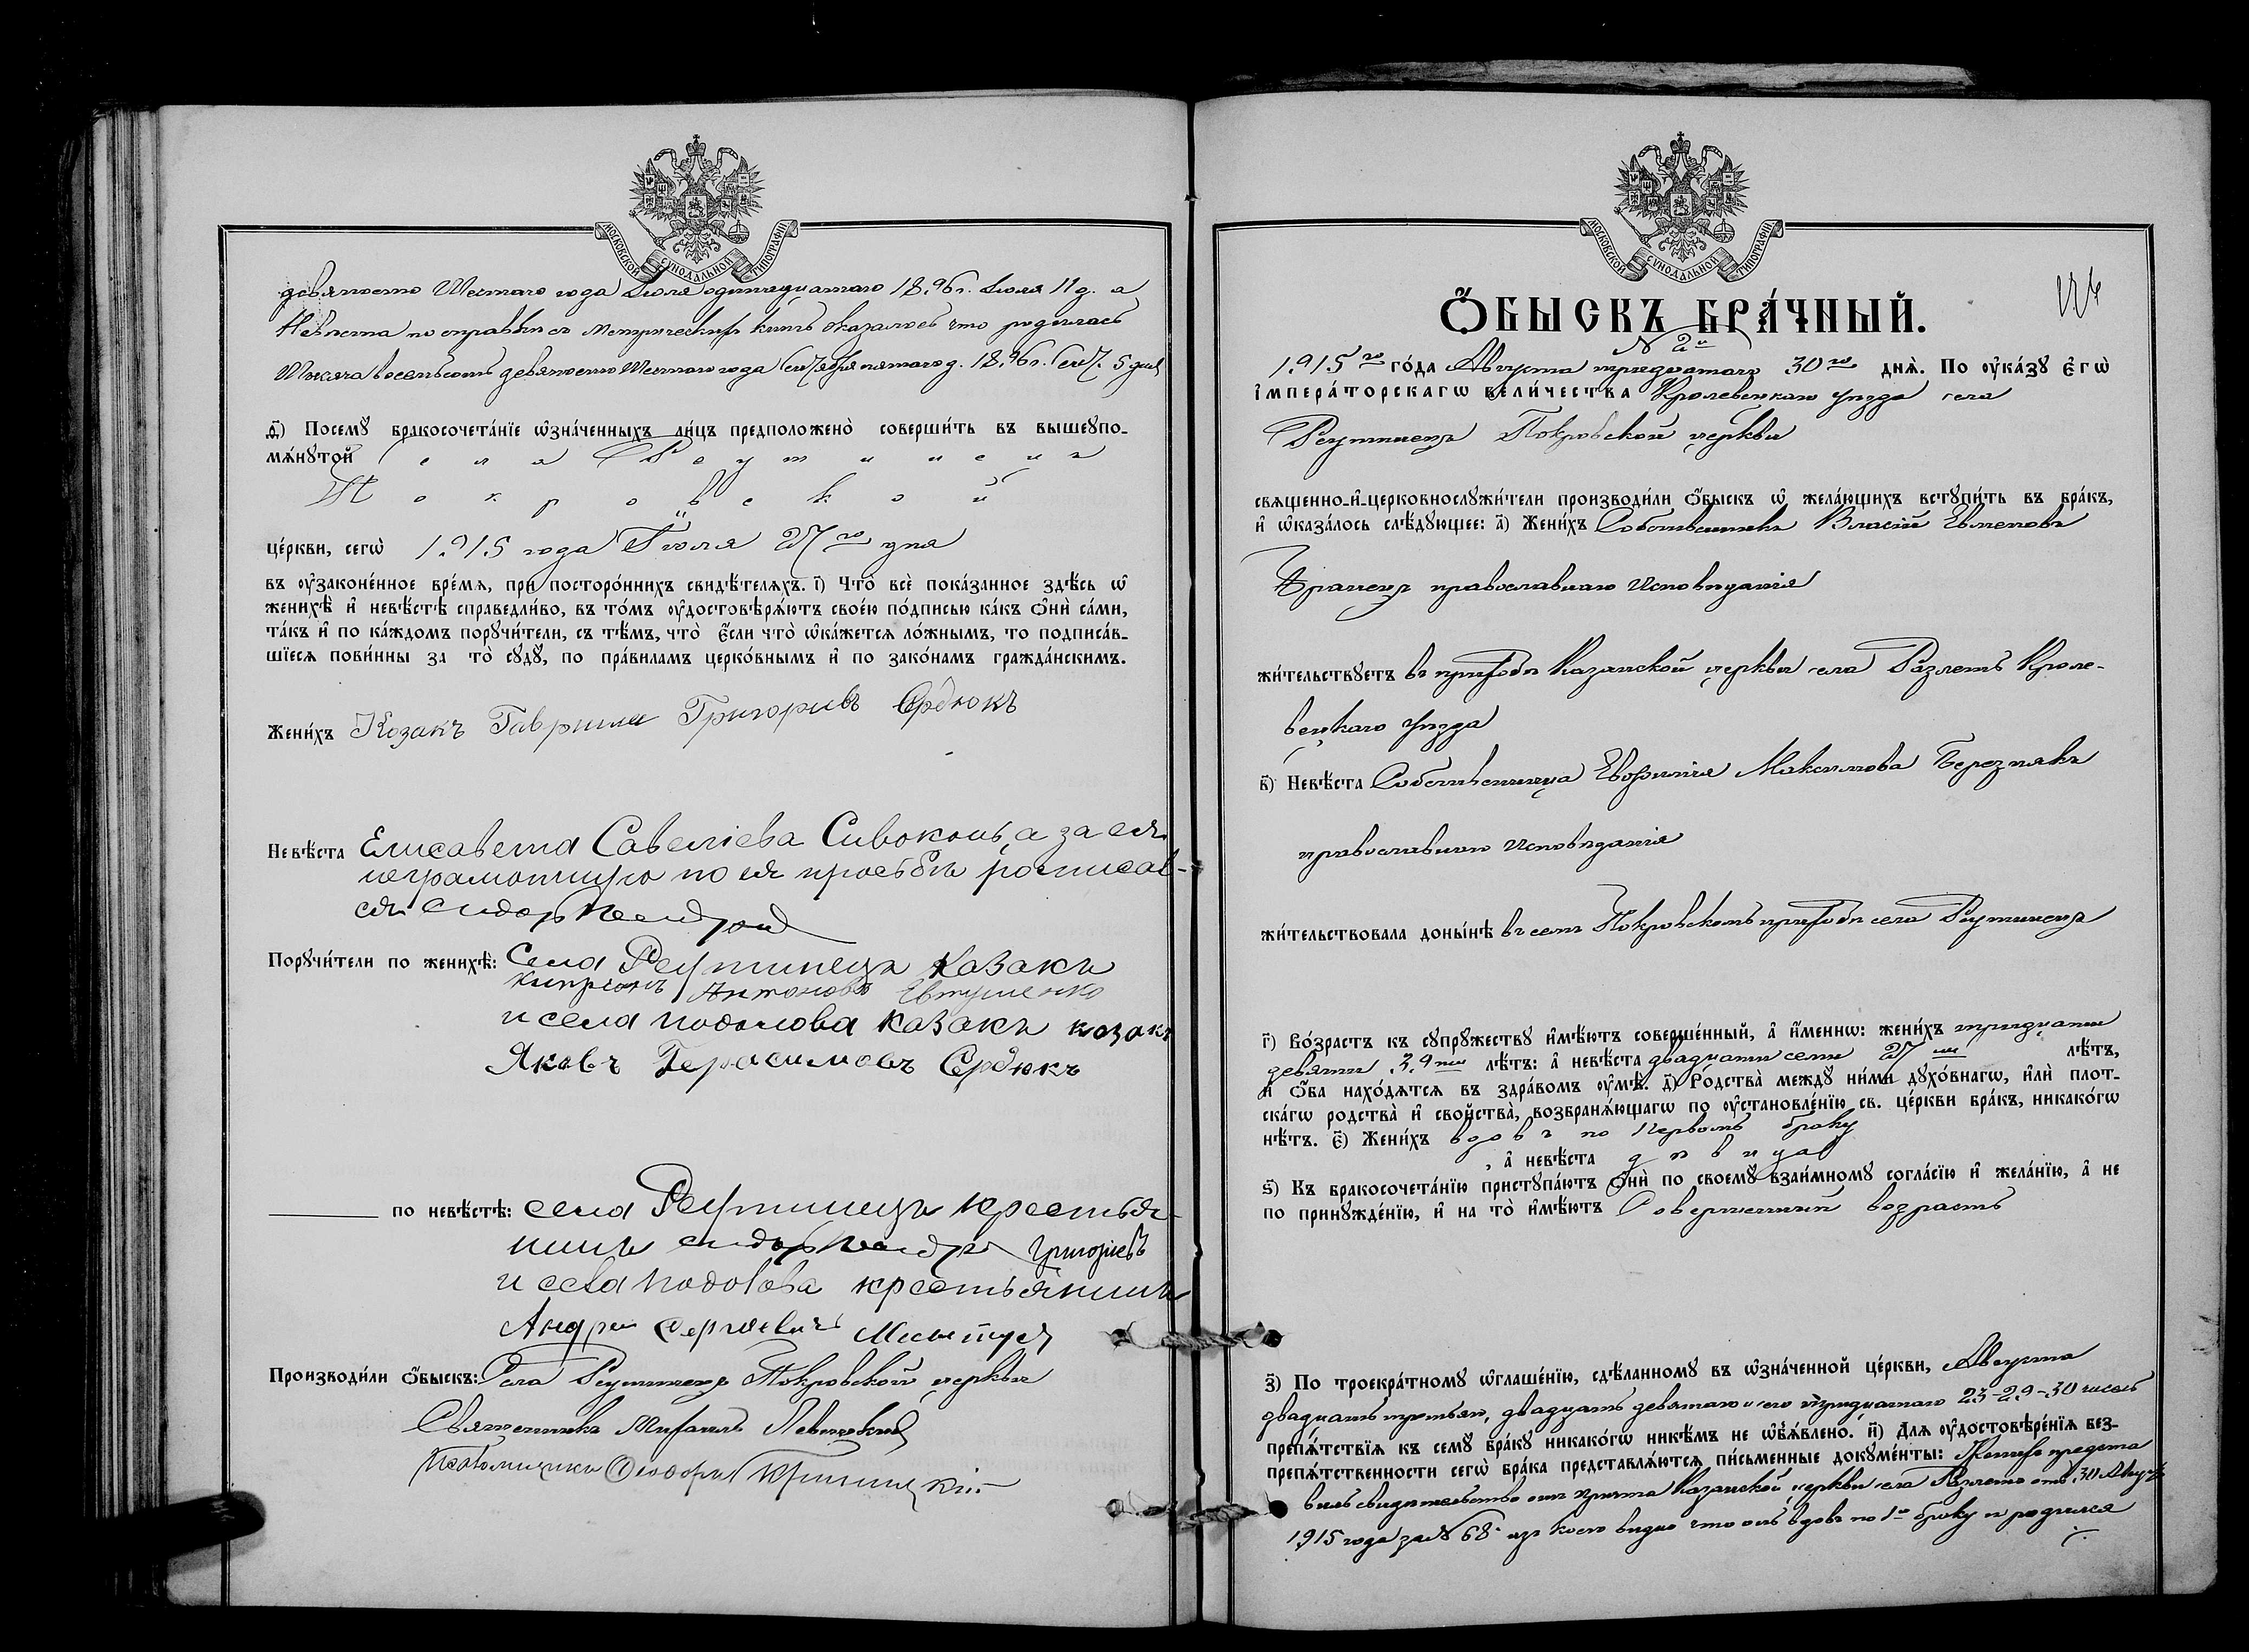 МОСКОВСКОЙ СѴНОДАЛЬНОЙ ТИПОГРАФІИ
девяносто Шестого года Іюля одинадцатаго 1896 г. Іюля 11 д. а
Невѣста по справки съ Метрическихъ книгъ оказалось что родилась
Тысяча восемьсотъ девяносто Шестого года Сентября пятого д. 1896 г. Сент. 5 дня
ѳ҃) Посемꙋ бракосочета́нїе ѡ҆зна́ченныхъ ли́цъ предположено̀ соверши́ть въ вышеꙋпо-
мѧ́нꙋтой села Реутинецъ
Покровской
це́ркви, сегѡ̀ 1915 года Іюля 27го дня
въ ᲂу҆законе́нное вре́мѧ, при посторо́ннихъ свидѣ́телѧхъ. і҃) Что̀ всѐ пока́занное здѣ́сь ѡ҆
женихѣ̀ и҆ невѣ́стѣ справедли́во, въ то́мъ ᲂу҆достовѣрѧ́ютъ свое́ю по́дписью ка́къ ѻ҆нѝ са́ми,
та́къ и҆ по ка́ждомъ порꙋчи́тели, съ тѣ́мъ, что̀ є҆́сли что̀ ѡ҆ка́жетсѧ ло́жнымъ, то подписа́в-
шїесѧ пови́нны за то̀ сꙋдꙋ̀, по пра́виламъ церко́внымъ и҆ по зако́намъ гражда́нскимъ.
Жени́хъ Козакъ Гавриил Григориевъ Сердюкъ
Невѣ́ста Елисавета Савеліева Сивоконь, а за ея
неграмотную по ея просьбѣ росписал-
ся Сидор
Порꙋчи́тели по женихѣ̀: Села Реутинецъ казакъ
Киприянъ Антоновъ Евтушенко
и села Подолова казакъ козакъ
Яковъ Герасимовъ Сердюкъ
по невѣ́стѣ: села Реутинецъ крестья-
нинъ Сидор Григориевъ
и села Подолова крестьянинъ
Андрей Сергѣевичъ
Производи́ли ѻ҆́быскъ: Села Реутинецъ Покровской церкви
Священникъ Михаилъ Левицкій
Псаломщикъ Ѳеодоръ Криницкій
МОСКОВСКОЙ СѴНОДАЛЬНОЙ ТИПОГРАФІИ
Ѻ҆́БЫСКЪ БРА́ЧНЫЙ.
№ 2й
1915го го́да Августа тридцатаго 30го днѧ̀. По ᲂу҆ка́зꙋ є҆гѡ̀
і҆мпера́торскагѡ вели́чества Кролевецкаго уѣзда села
Реутинецъ Покровской церкви
свѧщенно-и҆-церковнослꙋжи́тели производи́ли ѻ҆́быскъ ѡ҆ жела́ющихъ встꙋпи́ть въ бра́къ,
и҆ ѡ҆каза́лось слѣ́дꙋющее: а҃) Жени́хъ Собственникъ Власій
православнаго исповѣданія
жи́тельствꙋетъ въ приходѣ Казанской церкви села Разлетъ Кроле-
вецкаго уѣзда
в҃) Невѣ́ста Собственница Евфимія Максимова Березнякъ
православнаго исповѣданія
жи́тельствовала доны́нѣ въ семъ Покровскомъ приходѣ села Реутинецъ
г҃) Во́зрастъ къ сꙋпрꙋ́жествꙋ и҆мѣ́ютъ соверше́нный, а҆ и҆́меннѡ: жени́хъ тридцати
девяти 39ти лѣ́тъ: а҆ невѣ́ста двадцати семи 27ми лѣ́тъ,
и҆ ѻ҆́ба нахо́дѧтсѧ въ здра́вомъ ᲂу҆мѣ̀. д҃) Ро́дства̀ междꙋ ни́ми дꙋхо́внагѡ, и҆лѝ плот-
ска́гѡ родства̀ и҆ сво́йства̀, возбранѧ́ющагѡ по ᲂу҆становле́нїю св. це́ркви бра́къ, никако́гѡ
нѣ́тъ. є҃) Жени́хъ вдовъ по первомъ браку
, а҆ невѣ́ста дѣвица
ѕ҃) Къ бракосочета́нїю пристꙋпа́ютъ ѻ҆нѝ по своемꙋ̀ взаи́мномꙋ согла́сїю и҆ жела́нїю, а҆ не
по принꙋжде́нїю, и҆ на то̀ и҆мѣ́ютъ Совершенный возрастъ
з҃) По троекра́тномꙋ ѡ҆глаше́нїю, сдѣ́ланномꙋ въ ѡ҆зна́ченной це́ркви, Августа
двадцать третьяго, двадцать девятаго и сего тридцатаго 23-29-30 числъ
препѧ́тствїѧ къ семꙋ̀ бра́кꙋ никако́гѡ никѣ́мъ не ѡ҆б̾ѧ́влено. и҃) Длѧ ᲂу҆достовѣре́нїѧ без-
препѧ́тственности сегѡ̀ бра́ка представлѧ́ютсѧ пи́сьменные докꙋме́нты: Женихъ предста
вилъ свидѣтельство отъ причта Казанской церкви села Разлетъ отъ 30 Августа
1915 года за № 68 изъ коего видно что онъ вдовъ по 1му браку и родился